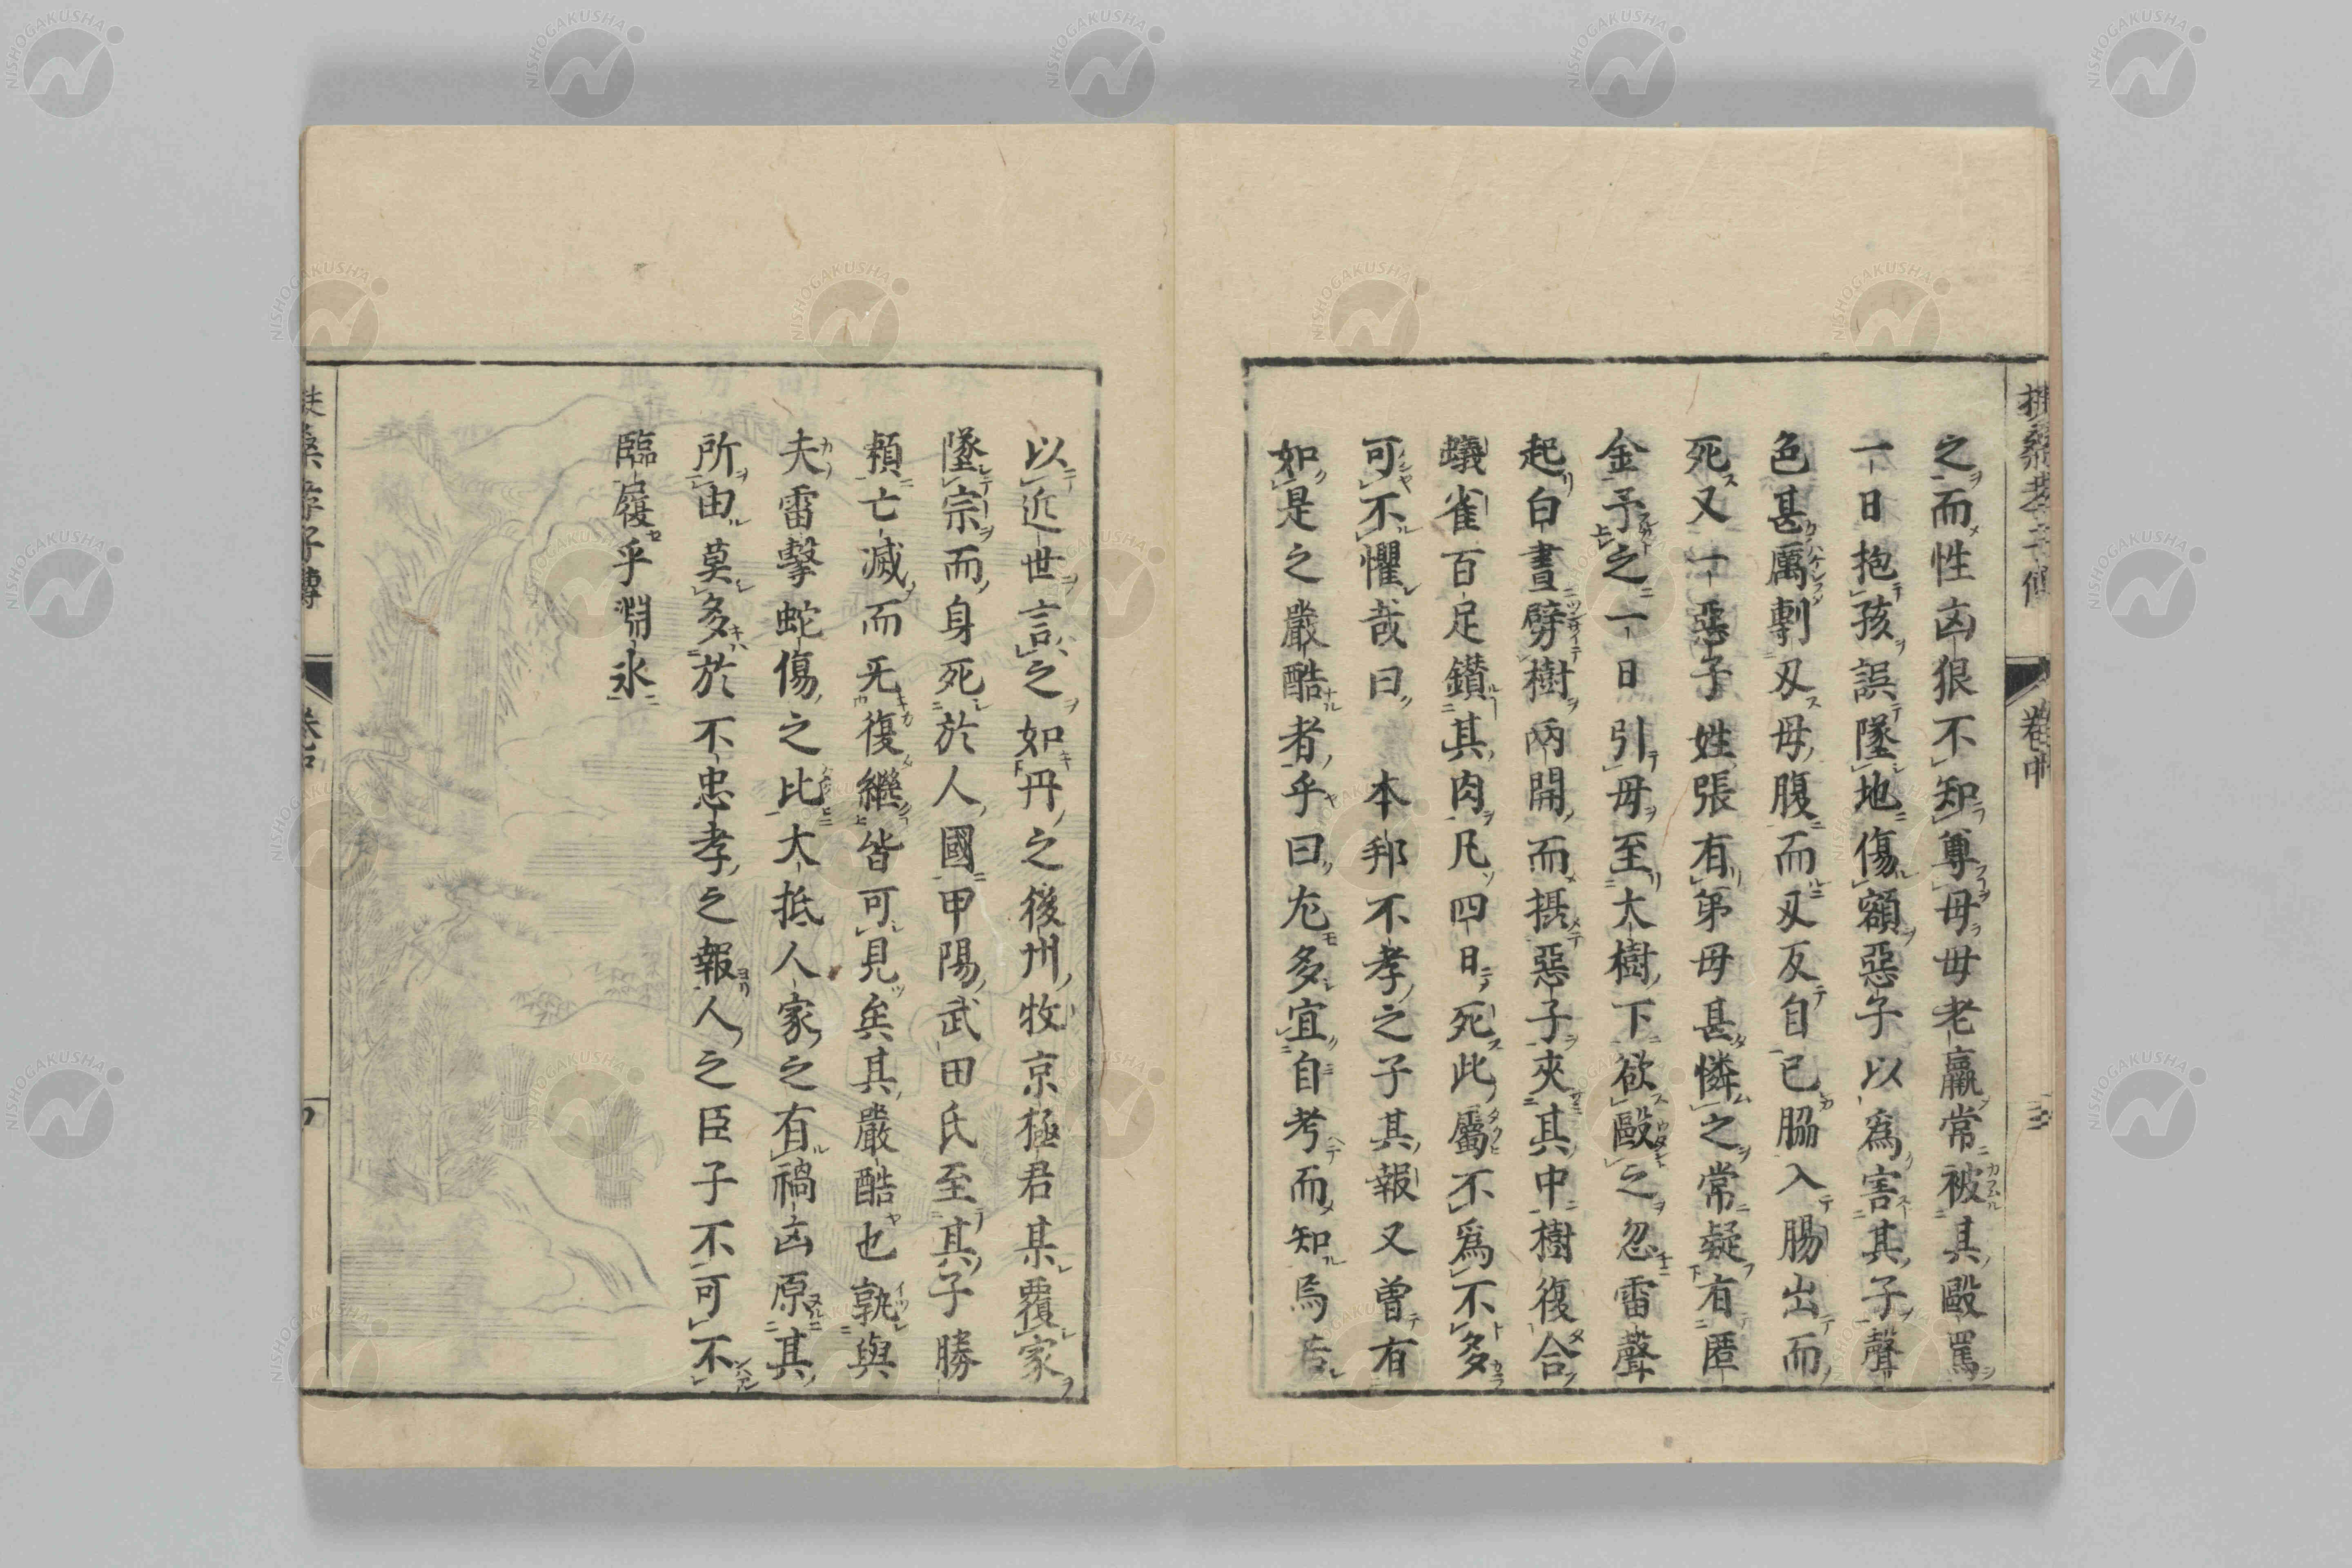 之而性凶狠不知尊母母老羸常被其毆罵
一日抱孩誤墜地傷額惡子以爲害其子聲
色甚厲剚刄母腹而刄反自已脇入腸出而
死又一惡子姓張有第母甚憐之常疑有匿
金予之一日引母至大樹下欲毆之忽雷聲
起白晝劈樹兩開而摂惡子夾其中樹復合
蟻雀百足鑚其肉凡四日死此屬不爲不多
可不懼哉曰本邦不孝之子其報又曽有
如是之嚴酷者乎曰尤多宜自考而知焉
以近世言之如丹之後州牧京極君某覆家
墜宗而身死於人國甲陽武田氏至其子勝
頼亡滅而无復繼皆可見矣其嚴酷也孰與
夫雷擊蛇傷之比大抵人家之有禍凶原其
所由莫多於不忠孝之報人之臣子不可不
臨履乎淵氷
孝子傳
卷中
NISHOGAKUSHA